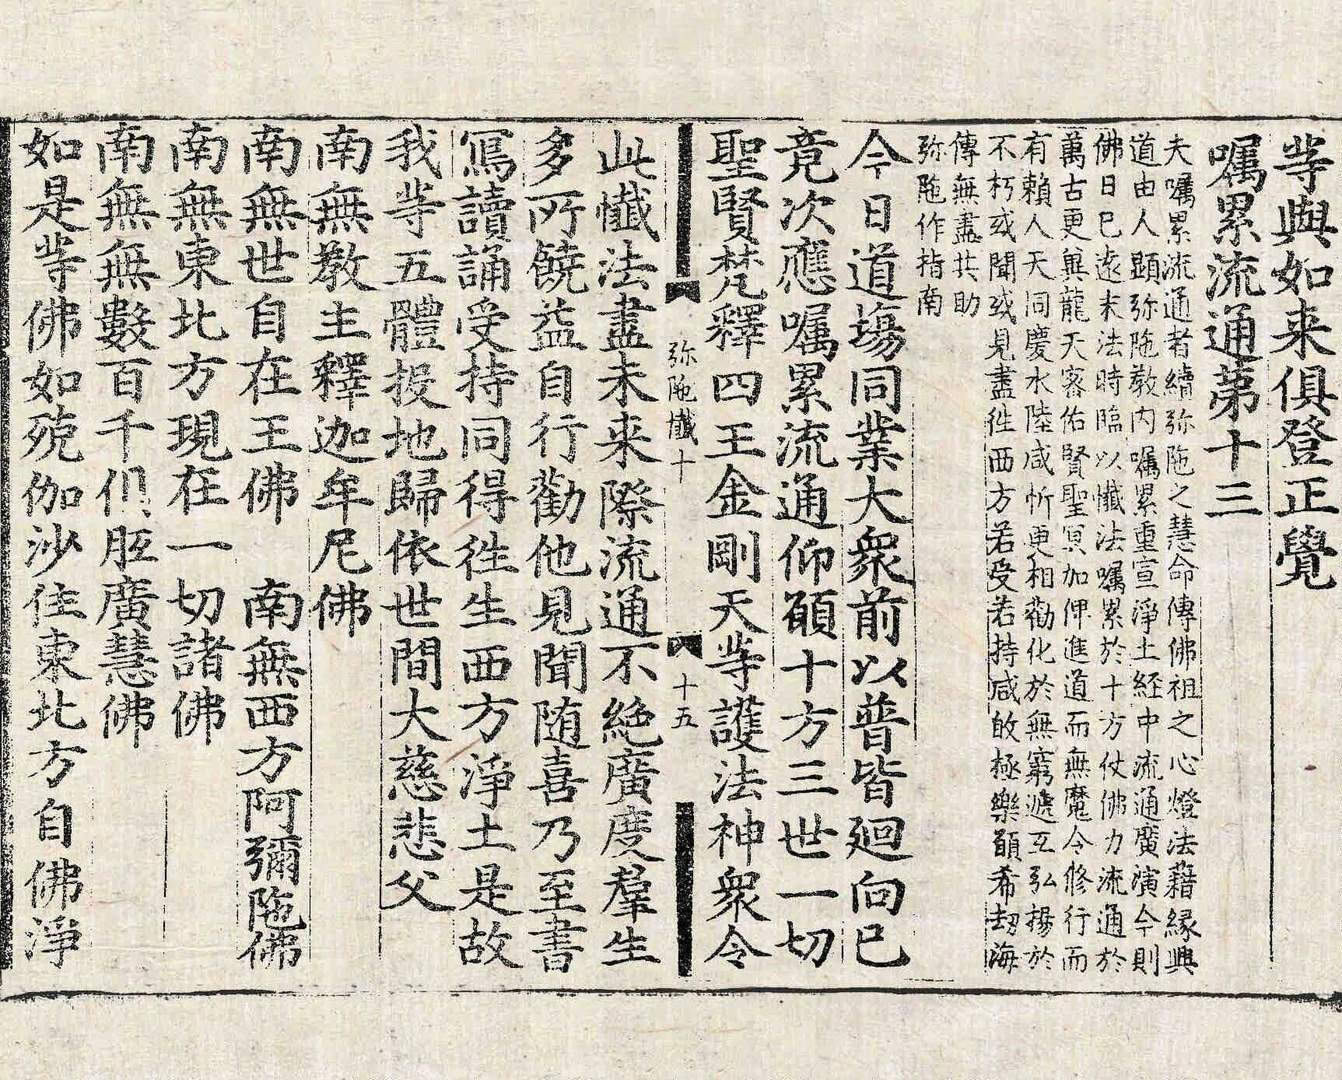 等與如来俱登正覺
囑累流通第十三
夫囑累流通者續弥陁之慧命傳佛祖之心燈法藉緣興
道由人顯弥陁教内囑累重宣淨土経中流通廣演今則
佛日已遠末法時臨以懺法囑累於十方仗佛力流通於
萬古更兾龍天宻佑賢聖冥加俾進道而無魔令修行而
有賴人天同慶水陸咸忻更相勸化於無窮遞互弘揚於
不朽或聞或見盡徃西方若受若持咸啟極樂願希劫海
傳無盡共助
弥陁作指南
今日道塲同業大衆前以普皆廻向已
竟次應囑累流通仰願十方三世一切
聖賢梵釋四王金剛天等護法神衆令
弥陁懺十
十五
此懺法盡未来際流通不絶廣度羣生
多所饒益自行勸他見聞随喜乃至書
寫讀誦受持同得徃生西方淨土是故
我等五體投地歸依世間大慈悲父
南無教主釋迦牟尼佛
南無世自在王佛　南無西方阿彌陁佛
南無東北方現在一切諸佛
南無無數百千俱胝廣慧佛
如是等佛如殑伽沙住東北方自佛淨